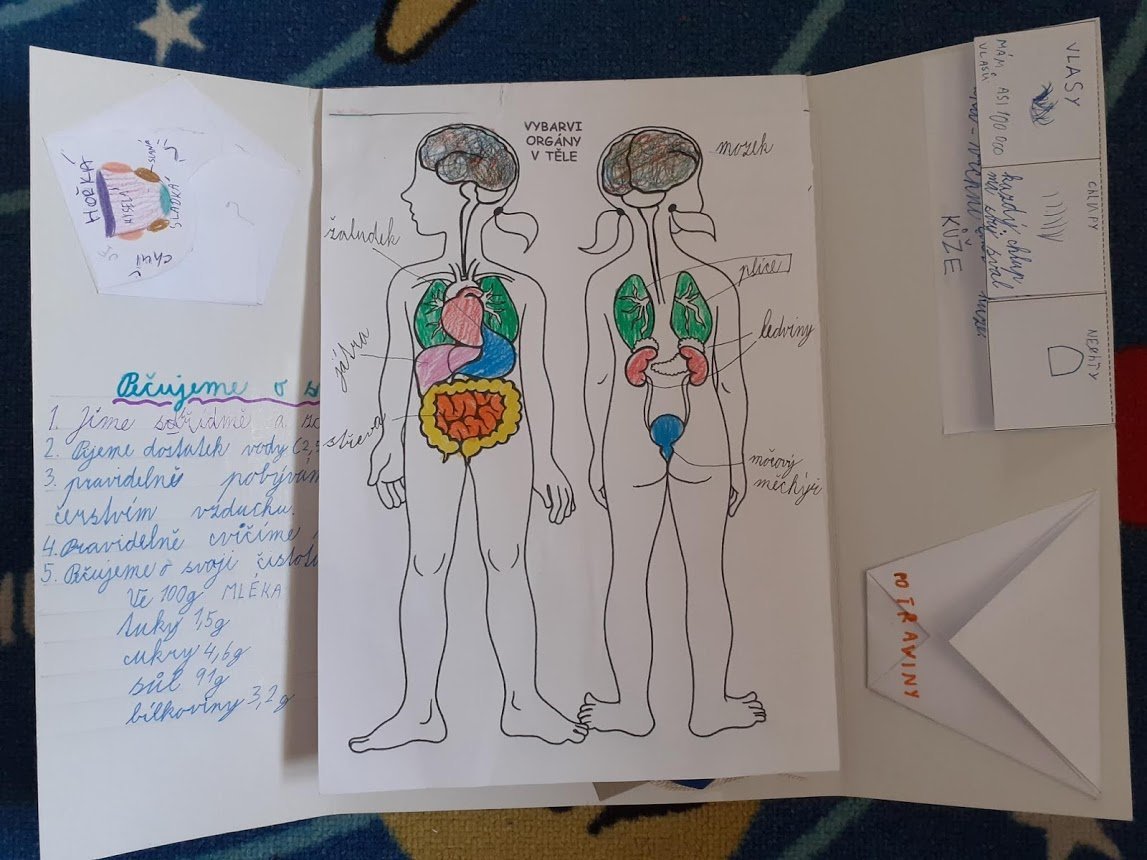 HOŘKÁ
KYSELÁ
SLANÁ
SLADKÁ
chuť
Pečujeme o s
1. Jíme střídmě a
2. Pijeme dostatek vody (2,5
3. pravidelně pobývám
čerstvím vzduchu.
4. Pravidelně cvičíme
5. Pečujeme o svoji čistot
Ve 100g MLÉKA
tuky 1,5g
cukry 4,6g
sůl 91g
bílkoviny 3,2g
VYBARVI
ORGÁNY
V TĚLE
mozek
žaludek
plíce
játra
ledviny
střeva
močový
měchýř
VLASY
MÁM ASI 100 000
VLASŮ
CHLUPY
každý chlup
má svůj sval
NEHTY
KŮŽE
POTRAVINY